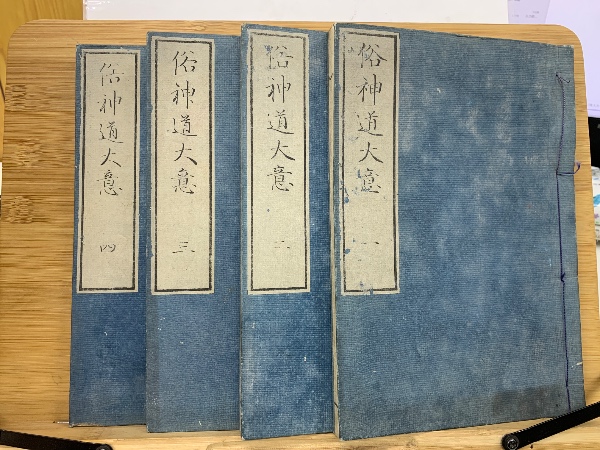 俗神道大意 一
俗神道大意 二
俗神道大意 三
俗神道大意 四